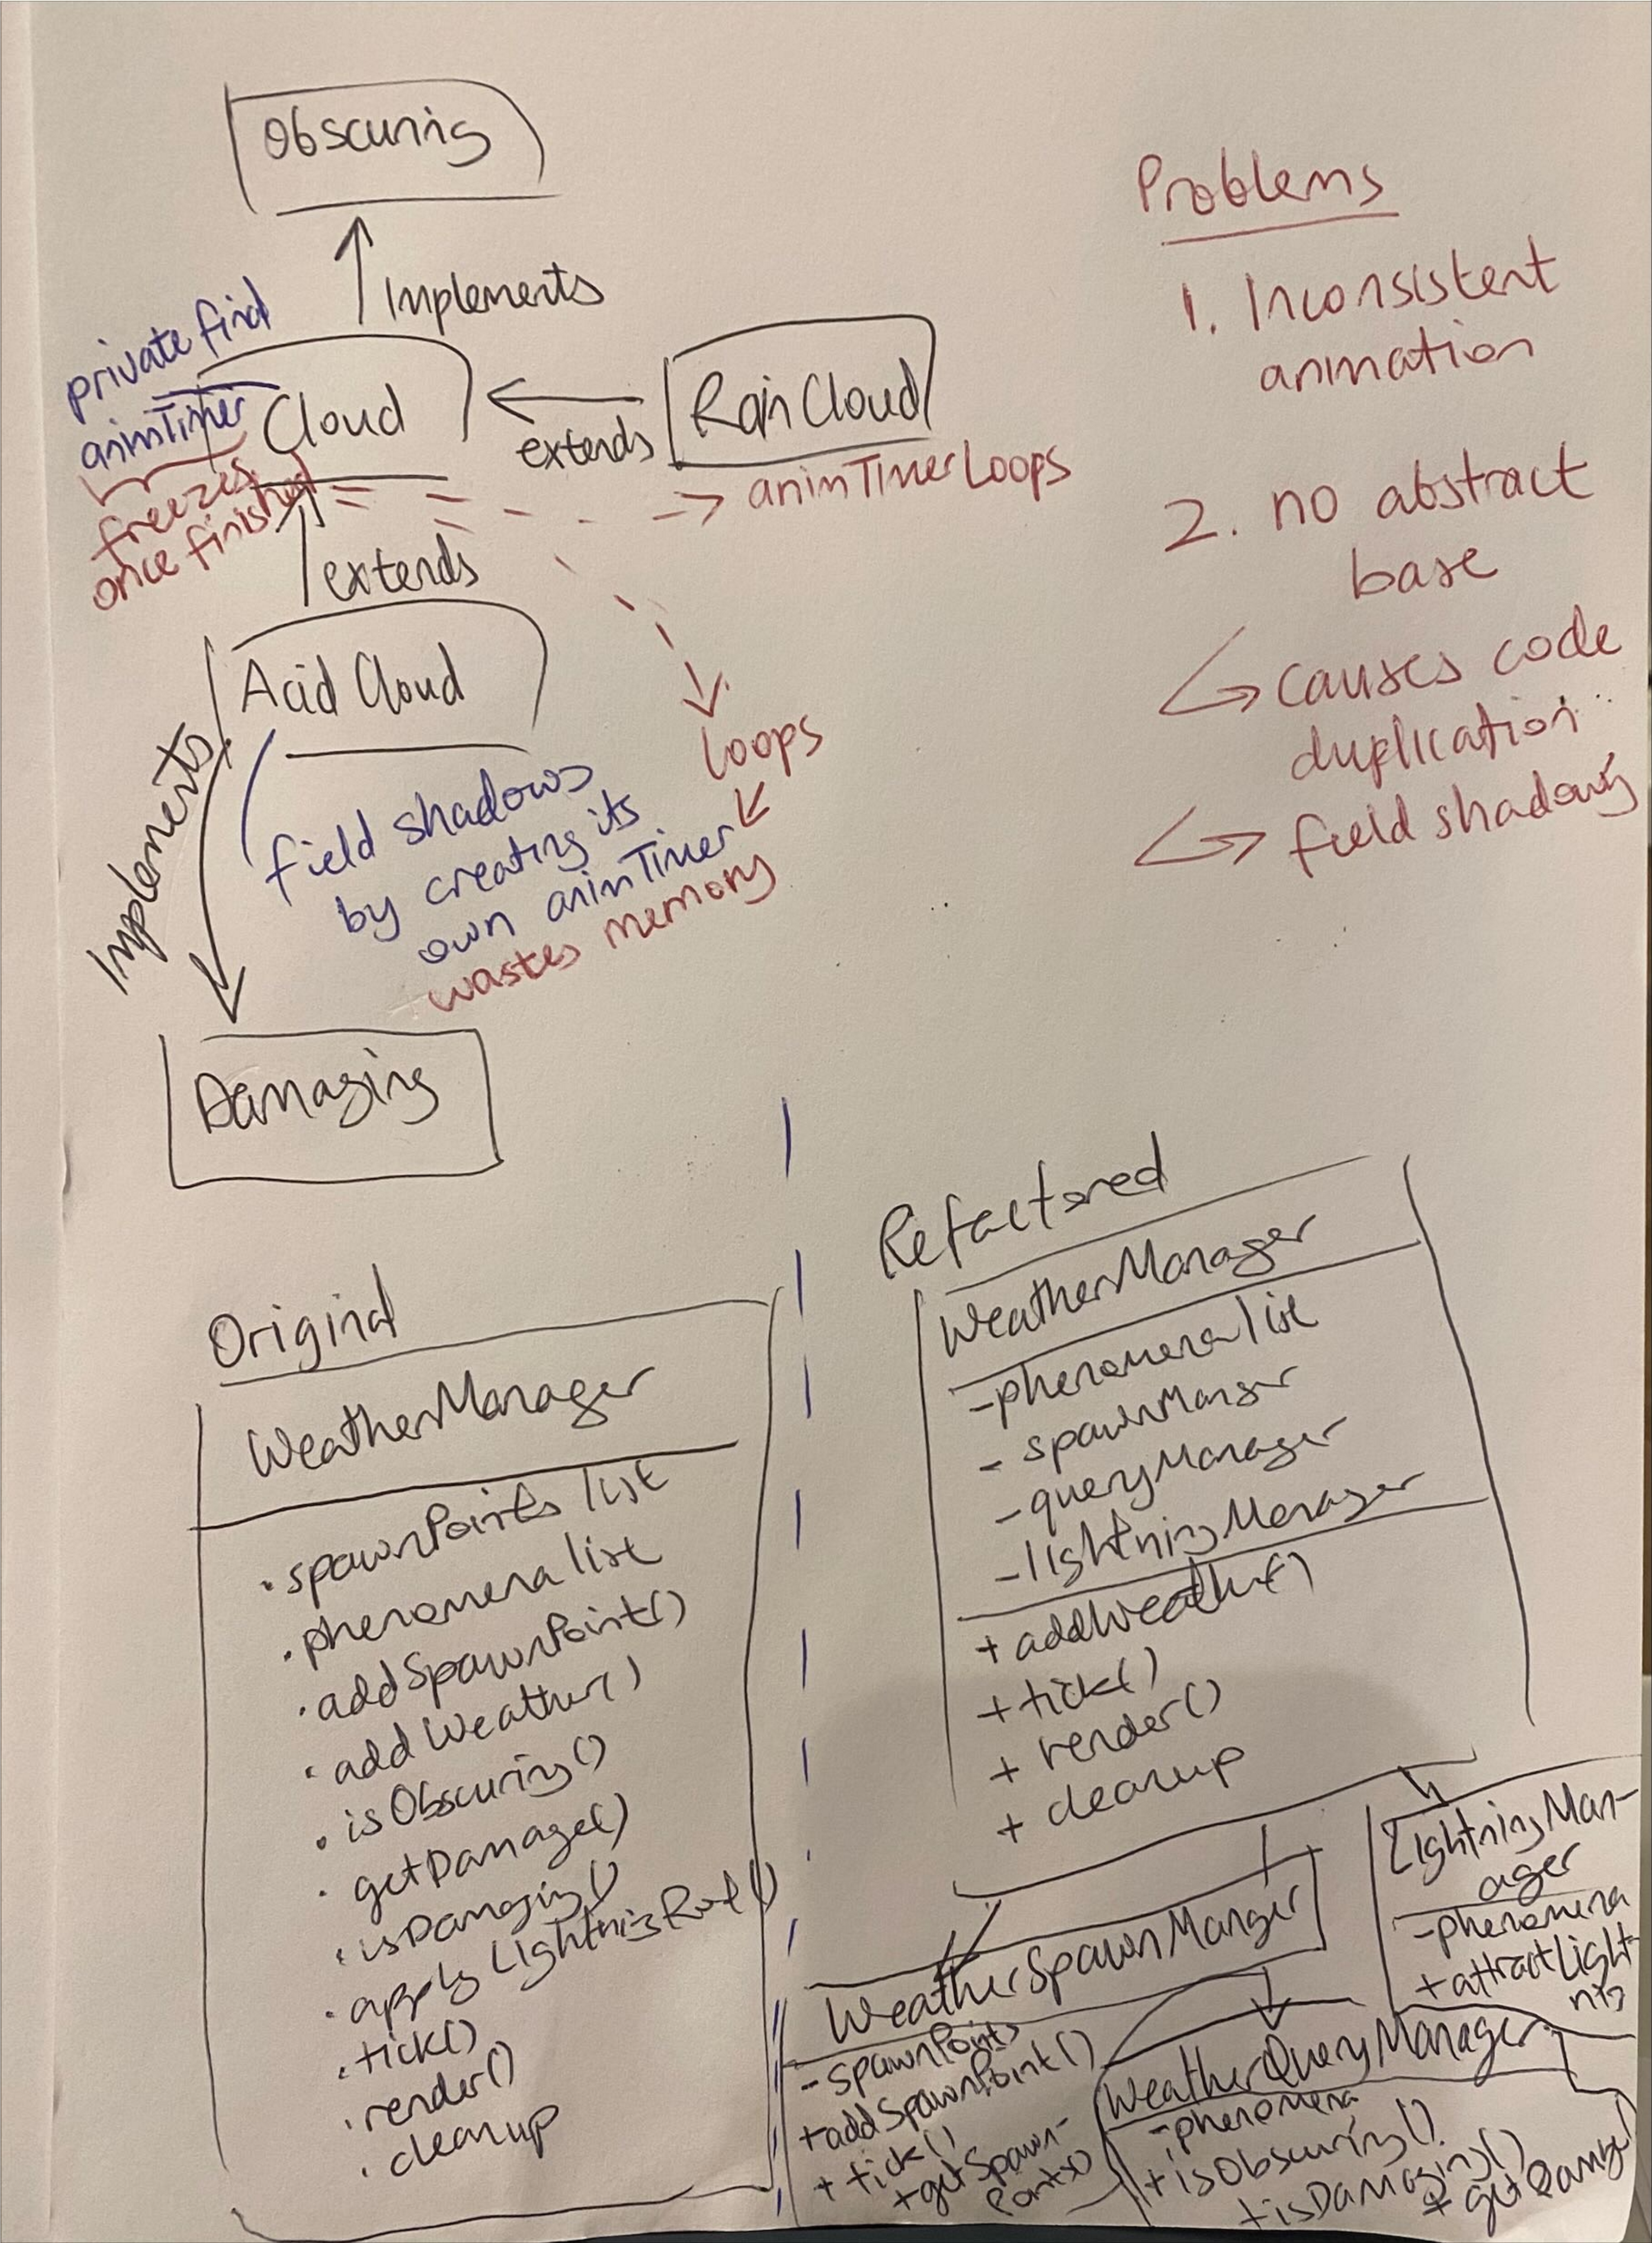 Obscuring
Implements
private final
animTimer
Cloud
freezes
once finished
extends
RainCloud
animTimer Loops
extends
Acid Cloud
Implements
field shadows
by creating its
own animTimer
wastes memory
Loops
Damaging
Problems
1. Inconsistent
animation
2. no abstract
base
causes code
duplication
field shadows
Original
WeatherManager
· spawnPoints list
· phenomena list
· addSpawnPoint()
· addWeather()
· isObscuring()
· getDamage()
· isDamaging()
· apply LightningRod()
· tick()
· render()
· cleanup
Refactored
WeatherManager
- phenomena list
- spawnManger
- queryManager
- lightningManager
+ addWeather()
+ tick()
+ render()
+ cleanup
WeatherSpawnManger
- spawnPoints
+ addSpawnPoint()
+ tick()
+ getSpawn-
Points()
LightningMan-
ager
- phenomena
+ attractLight-
ning
WeatherQueryManager
- phenomena
+ isObscuring()
+ isDamaging()
+ getDamage